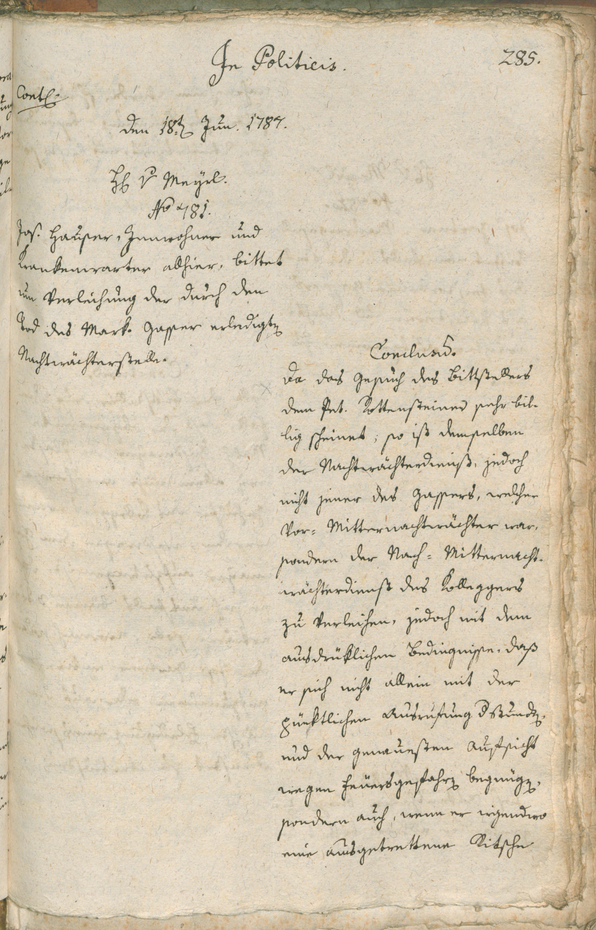 In Politicis.
285.
Contl:
den 18t Jun. 1787.
H v Mayrl.
No 481.
Jos. Hauser, Innwohner und
Krankenwarter alhier, bittet
um Verleihung der durch den
Tod des Mark. Gasser erledigten
Nachtwächterstelle.
Conclusd.
Da das Gesuch des Bittstellers
dem Ref. Rottensteiner sehr bil-
lig scheinet; so ist demselben
der Nachtwächterdienst, jedoch
nicht jener des Gassers, welcher
Vor- Mitternachtwächter war,
sondern der Nach- Mitternacht-
wächterdienst des Kolleggers
zu verleihen, jedoch mit dem
ausdrüklichen Bedingnisse, daß
er sich nicht allein mit der
pünktlichen Ausrufung d Stunden,
und der genauesten Aufsicht
wegen Feuersgefahren begnügen,
sondern auch, wenn er irgendwo
eine ausgetrettene Ritsche